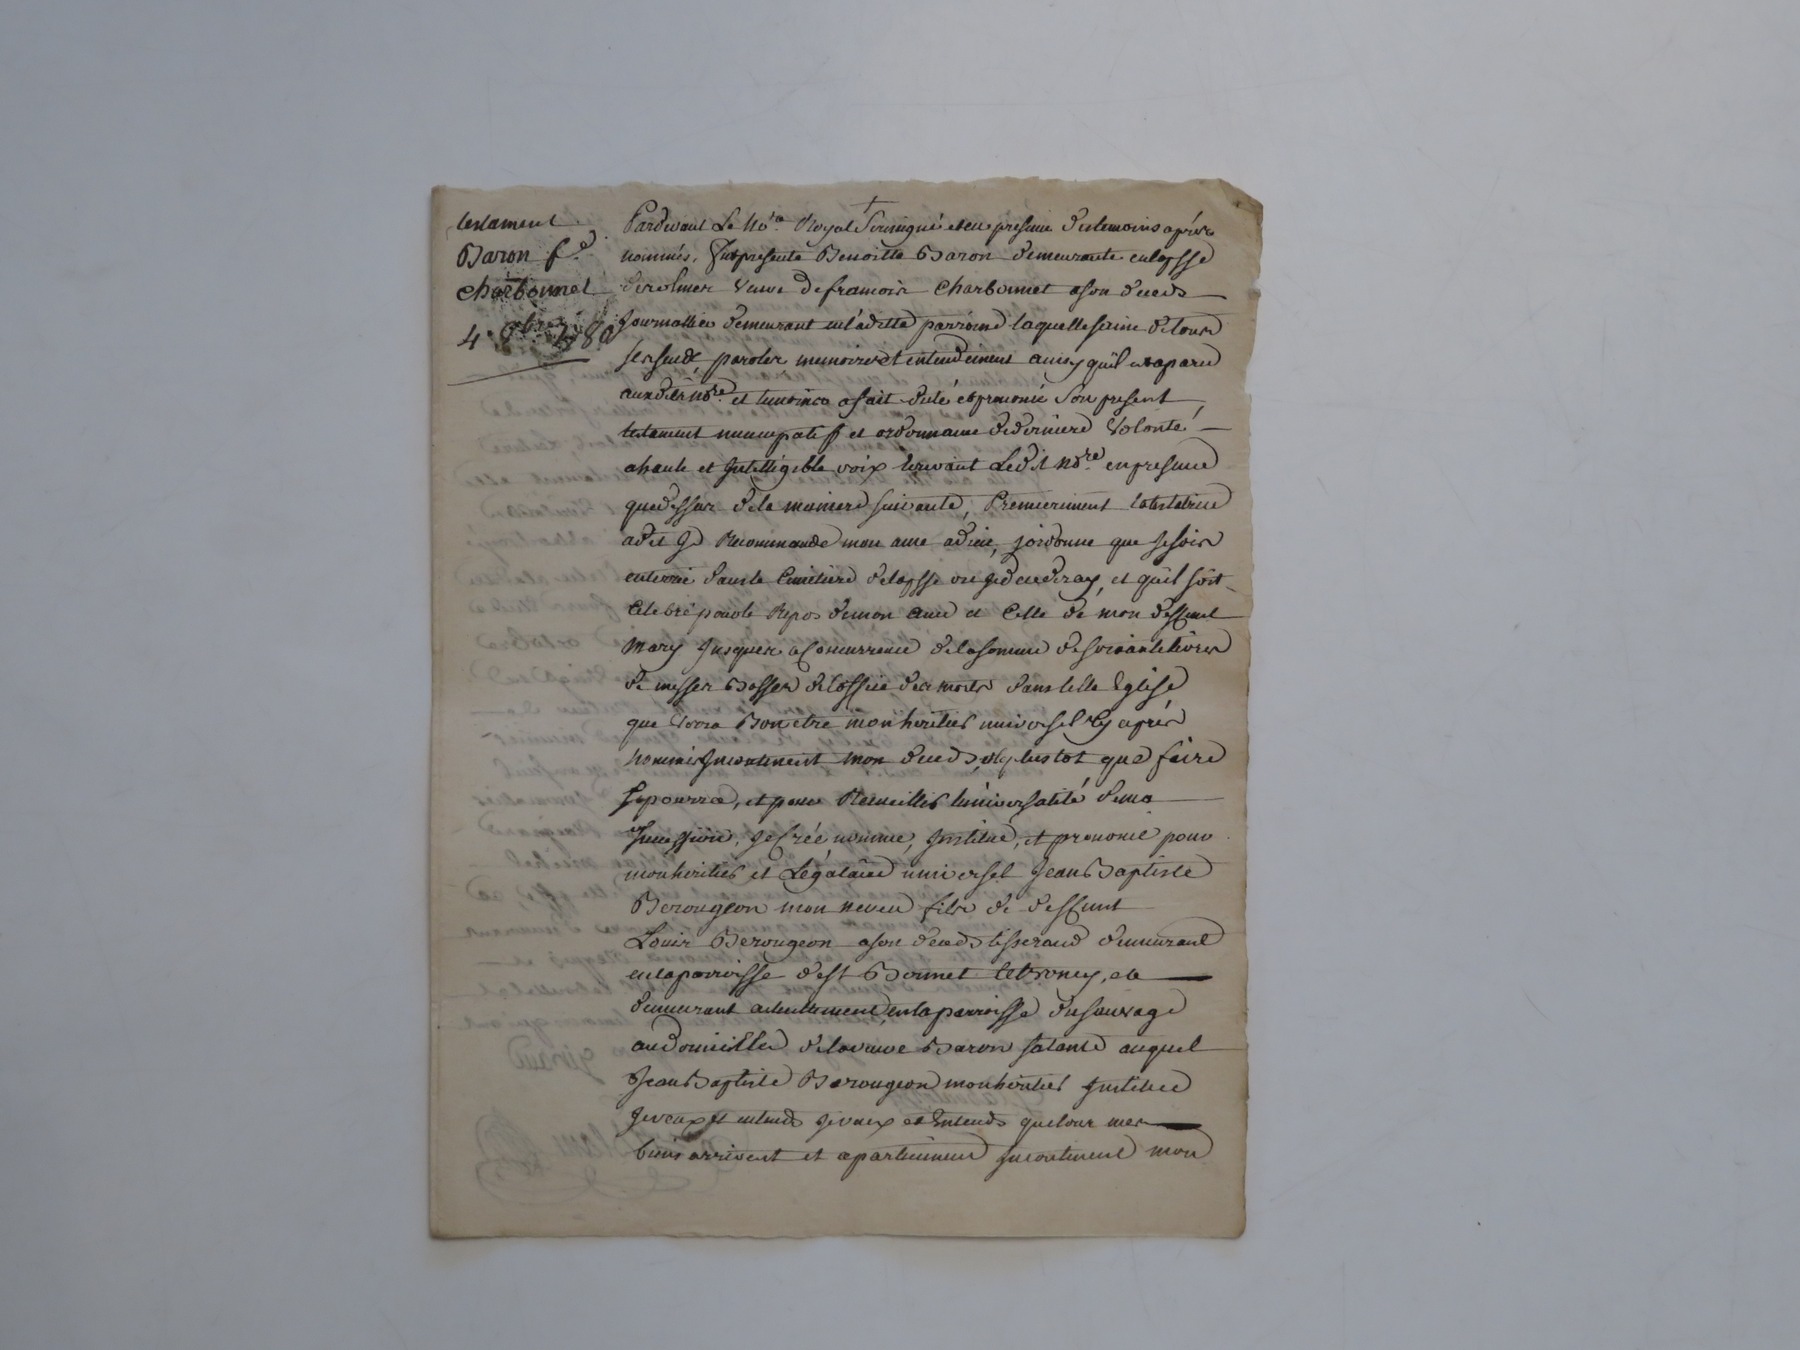 testament
Baron fe
charbonnet
4 8bre 1780
Pardevant Le No.re Royal Soussigné et en presence des temoins aprés
nommés, fut presente Benoitte Baron demeurante en la psse
derolmer veuve de francois Charbonnet a son deceds
journallier demeurant en laditte parroisse laquelle saine de tous
ses sens, parole, memoire et entendement ainsy quil a aparu
audit No.re et temoins a fait dicté et prononcé son present
testament nuncupatif et ordonnance de derniere Volonté
a haute et Intelligible voix Ecrivant Ledit No.re en presence
que dessus de la maniere suivante, Premierement la testatrice
a dit Je Recommande mon ame a dieu, jordonne que je sois
enterrée dans le Cimetiere de la psse ou je decederay, et quil soit
Celebré pour le Repos de mon ame et Celle de mon deffunt
Mary Jusques a Concurrence de la somme de soixante livres
de messes Basses de loffice des morts dans telle Eglise
que verra Bon etre mon heritier universel Cy aprés
nommé Incontinent mon deceds, ou plustot que faire
se pourra, et pour Recueillir luniversalité de ma
Succession, Je Crée nomme, Institue, et prononce pour
mon heritier et Légataire universel Jean Baptiste
Berougeon mon neveu fils de deffunt
Louis Berougeon a son deceds tisserand demeurant
en la parroisse de st Bonnet le troncy, et
demeurant actuellement en la parroisse du sauvage
au domicille de la veuve Baron sa tante auquel
Jean Baptiste Berougeon mon heritier Institué
Je veux et entends Je veux et Entends que tous mes
biens arrivent et apartiennent Incontinent mon